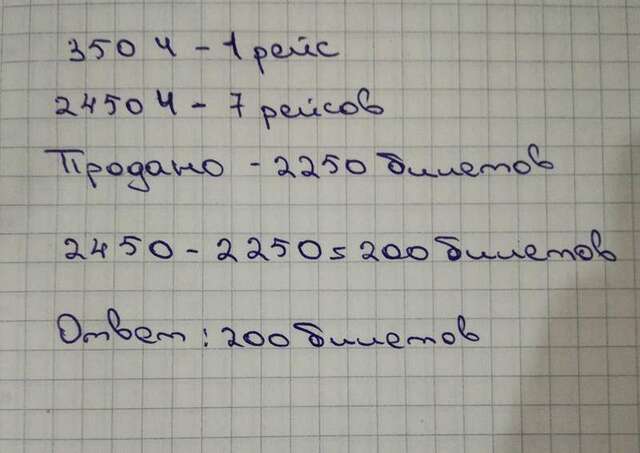 350 Ч - 1 рейс
2450 Ч - 7 рейсов
Продано - 2250 билетов
2450 - 2250 = 200 билетов
Ответ: 200 билетов